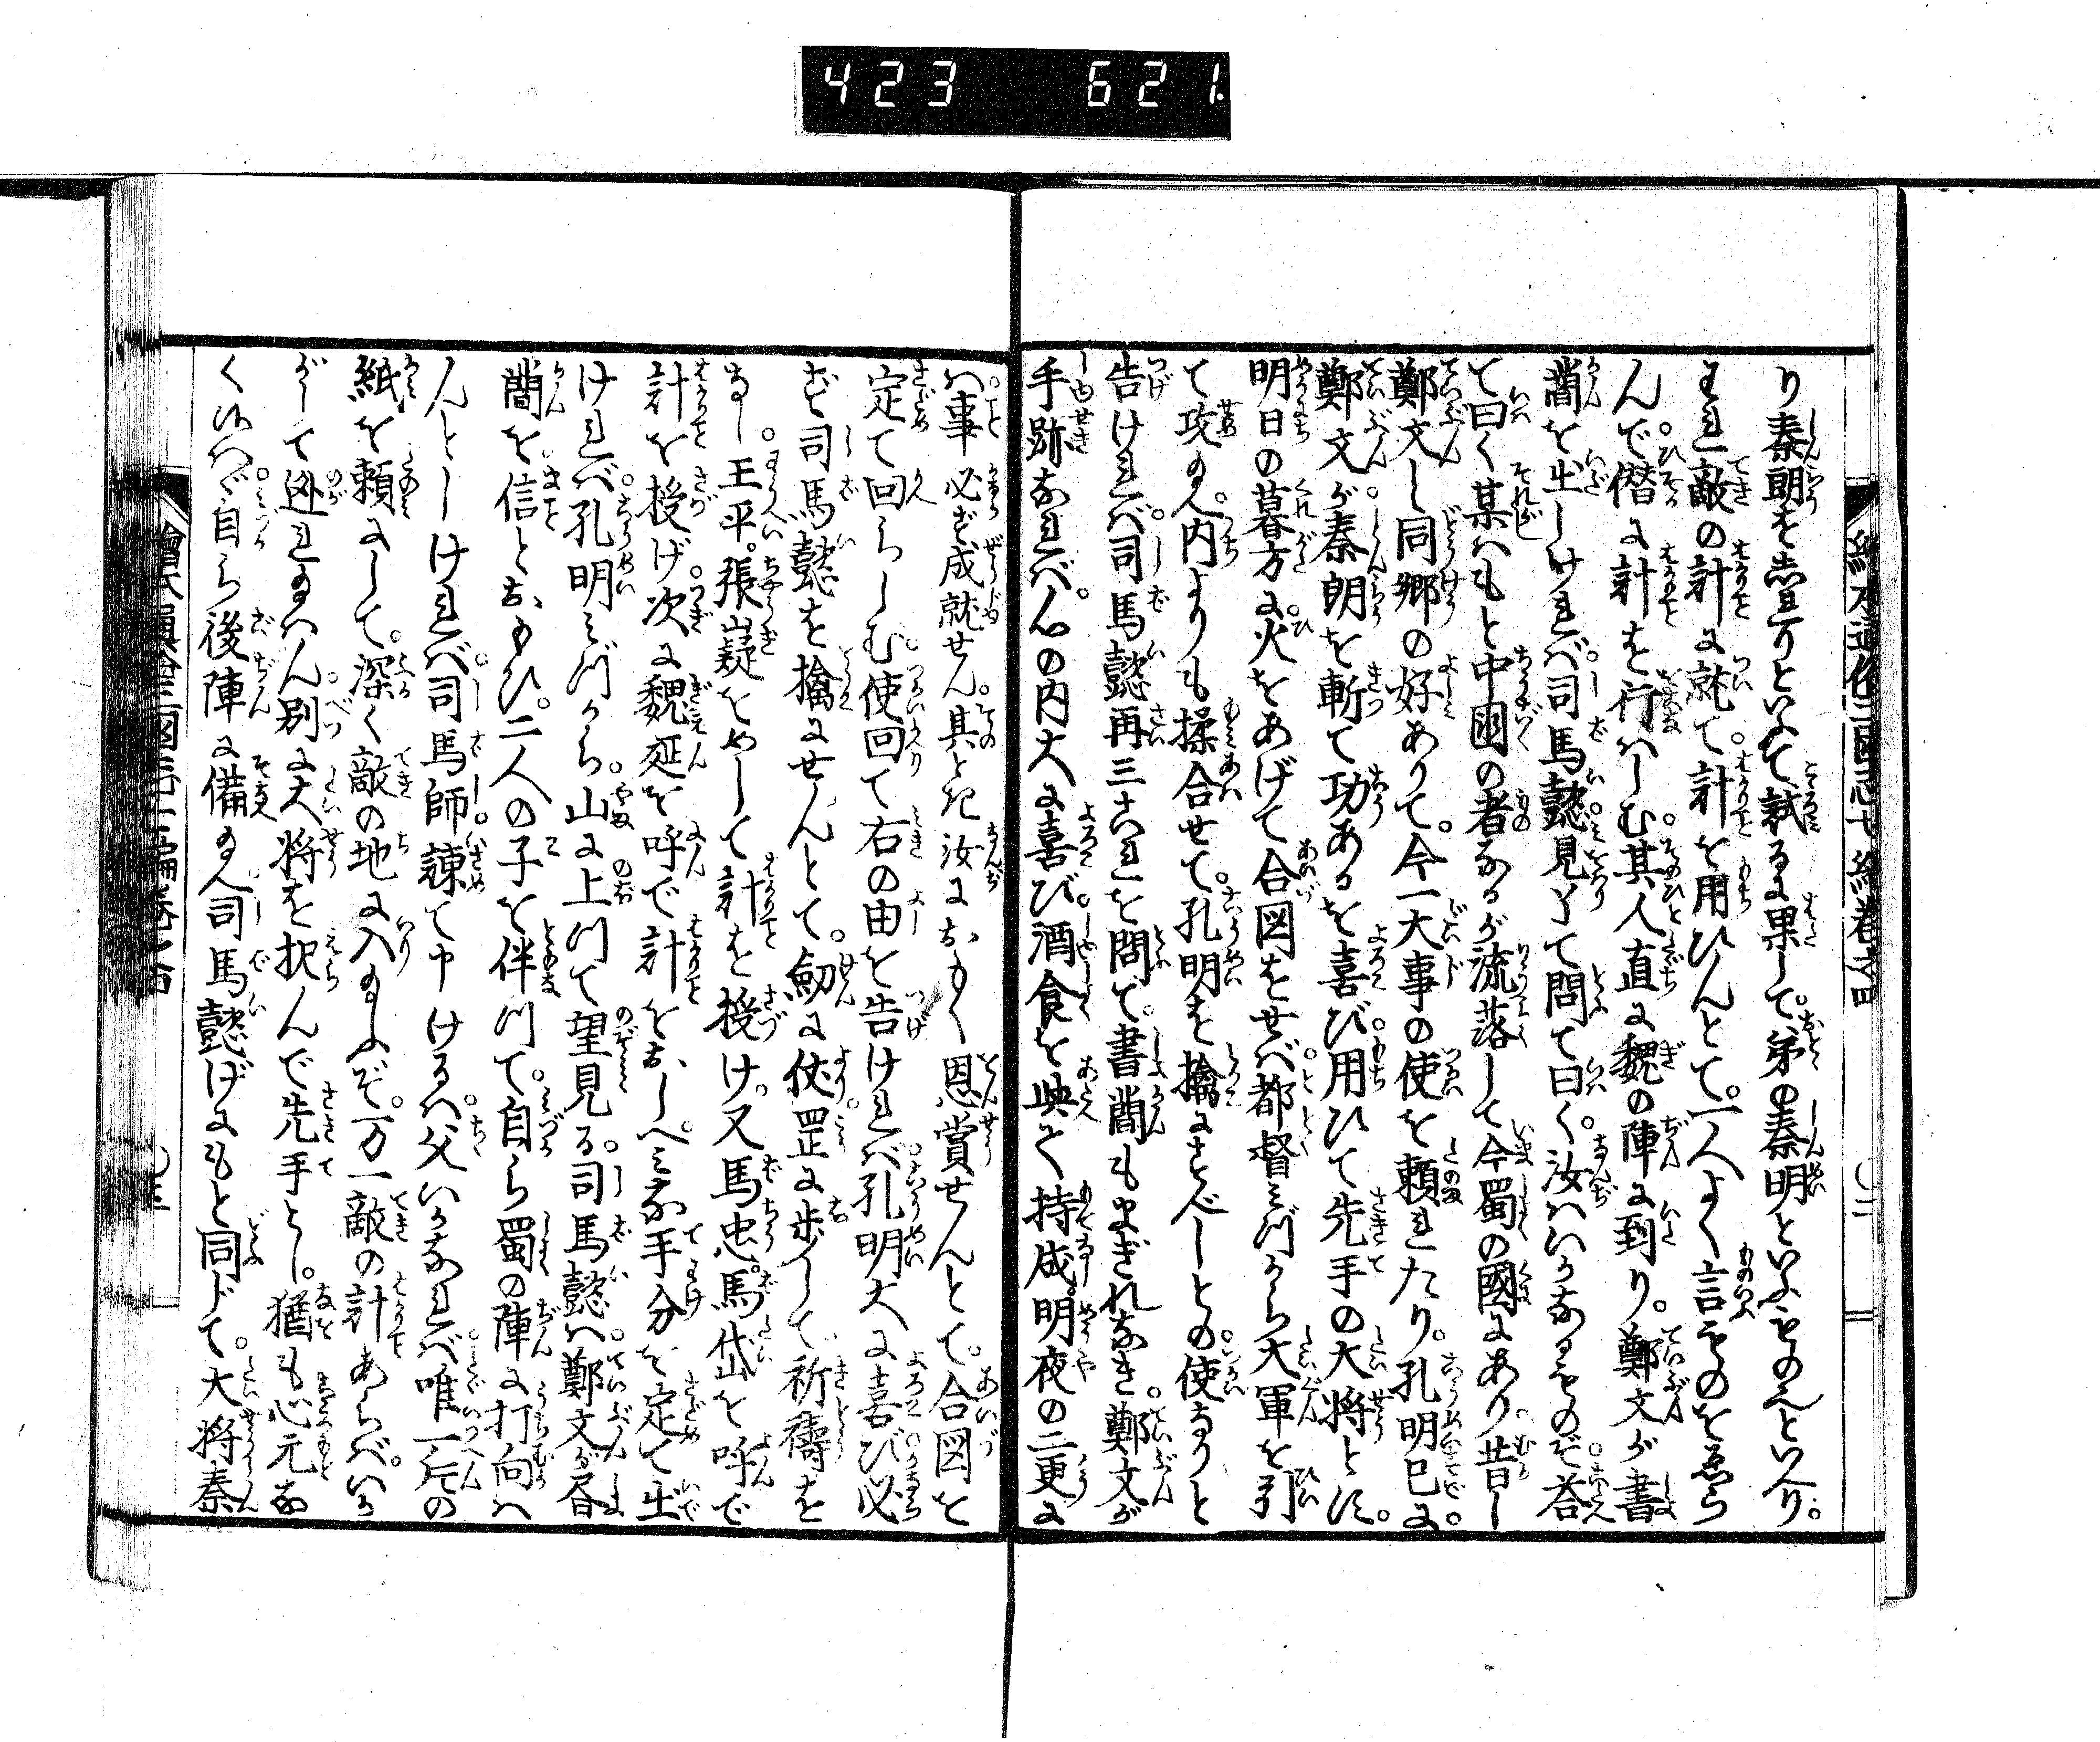 423 621
り秦朗を志れりといふて試るに果して。弟の秦明といふものえといへり。
われ敵の計に就て。計を用ひんとて。一人よく言ものをゑら
んで。潜に計を行はしむ。其人直に魏の陣に到り。鄭文が書
簡を出しければ。司馬懿。見了て問て曰く。汝はいかなるものぞ。答
て曰く某はもと中国の者なるが流落して今蜀の國にあり。昔し
鄭文し同郷の好ありて。今一大事の使を頼れたり。孔明已に。
鄭文が。秦朗を斬て功あるを喜び。用ひて先手の大将とす。
明日の暮方に。火をあげて合図をせば。都督みづから大軍を引
て攻給へ。内よりも揉合せて。孔明を擒にすべしとの。使なりと
告ければ。司馬懿再三これを問て。書簡もまぎれなき。鄭文が
手跡なれば。心の内大に喜び。酒食を與へて持成。明夜の二更に
は。事必ず成就せん。其とき汝におもく恩賞せんとて。合図を
定て回らしむ。使回て右の由を告ければ。孔明大に喜び。必
ず司馬懿を擒にせんとて。劔に仗。罡に歩して祈祷を
なし。王平。張嶷をめして計を授け。又馬忠。馬岱を呼で
計を授げ。次に魏延を呼で計をおしへ。みな手分を定て出
ければ。孔明みづから。山に上つて望見る。司馬懿は。鄭文が眉
簡を。信とおもひ。二人の子を伴つて。自ら蜀の陣に打向は
んとしければ。司馬師。諫て申けるは。父いかなれば。唯一片の
紙を頼にして。深く敵の地に入給ふぞ。万一敵の計あらば。いか
がして逃れ給はん。別に大将を択んで先手とし。猶も心元な
く候はゞ。自ら後陣に備給へ。司馬懿げにもと同じて。大将秦